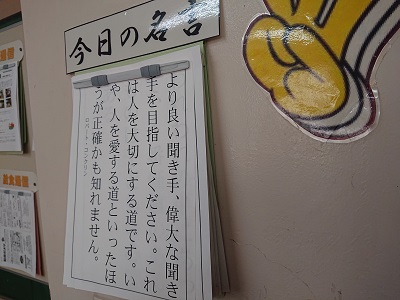 今日の名言
より良い聞き手、偉大な聞き
手を目指してください。これ
は人を大切にする道です。い
や、人を愛する道といったほ
うが正確かも知れません。
ロバート・コンクリン